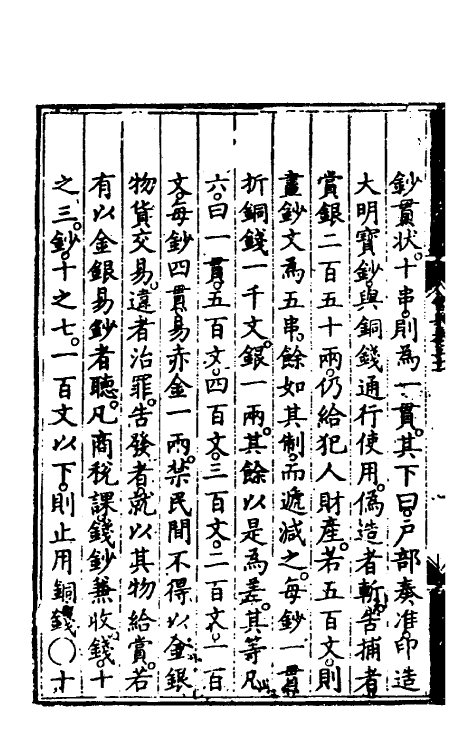 鈔貫狀。十串。則為一貫。其下曰。戶部奏准。印造
大明寶鈔。與銅錢通行使用。偽造者斬。告捕者
賞銀二百五十兩。仍給犯人財產。若五百文。則
畫鈔文為五串。餘如其制。而遞減之。每鈔一貫
折銅錢一千文。銀一兩。其餘以是為差。其等凡
六。曰一貫。五百文。四百文。三百文。二百文。一百
文。每鈔四貫。易赤金一兩。禁民間不得以金銀
物貨交易。違者治罪。告發者。就以其物給賞。若
有以金銀易鈔者聽。凡商稅課。錢鈔兼收。錢十
之三。鈔十之七。一百文以下。則止用銅錢〇十